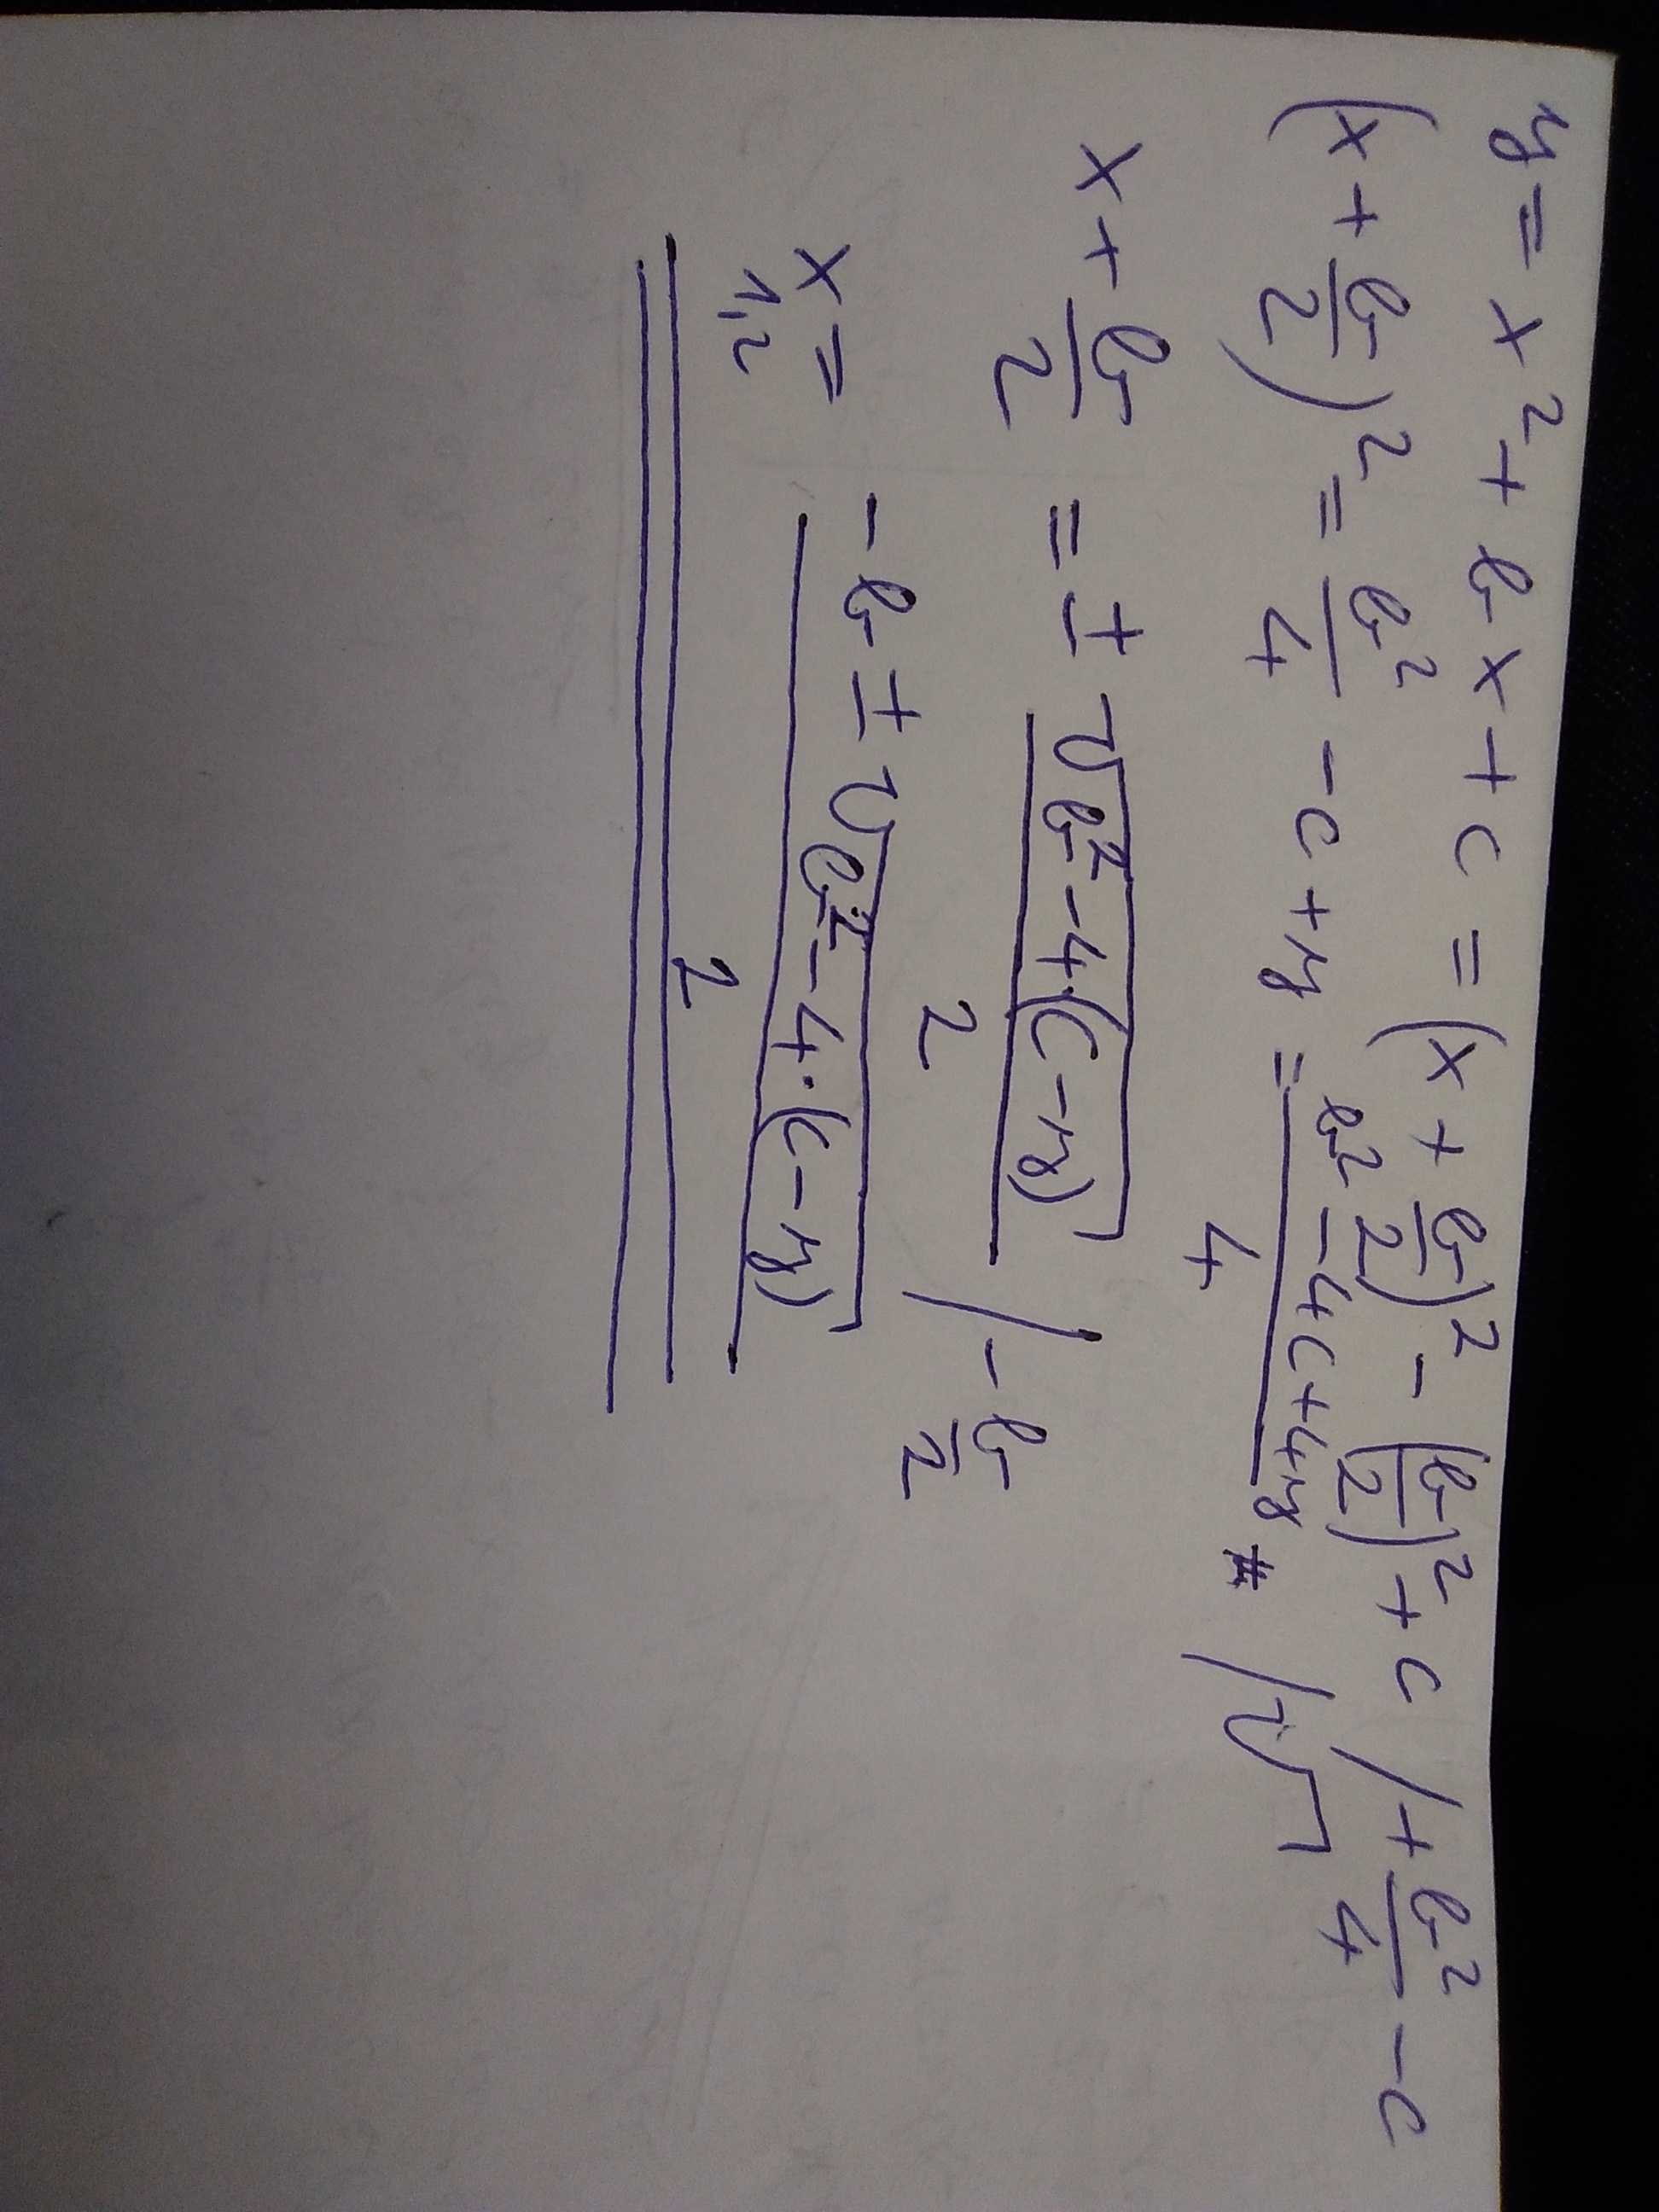 y = x² + bx + c = (x + b/2)² - (b/2)² + c / + b²/4 - c
(x + b/2)² = b²/4 - c + y = (b² - 4c + 4y)/4 /√
x + b/2 = ± √(b² - 4·(c - y))/2 / - b/2
x₁,₂ = (-b ± √(b² - 4·(c - y)))/2